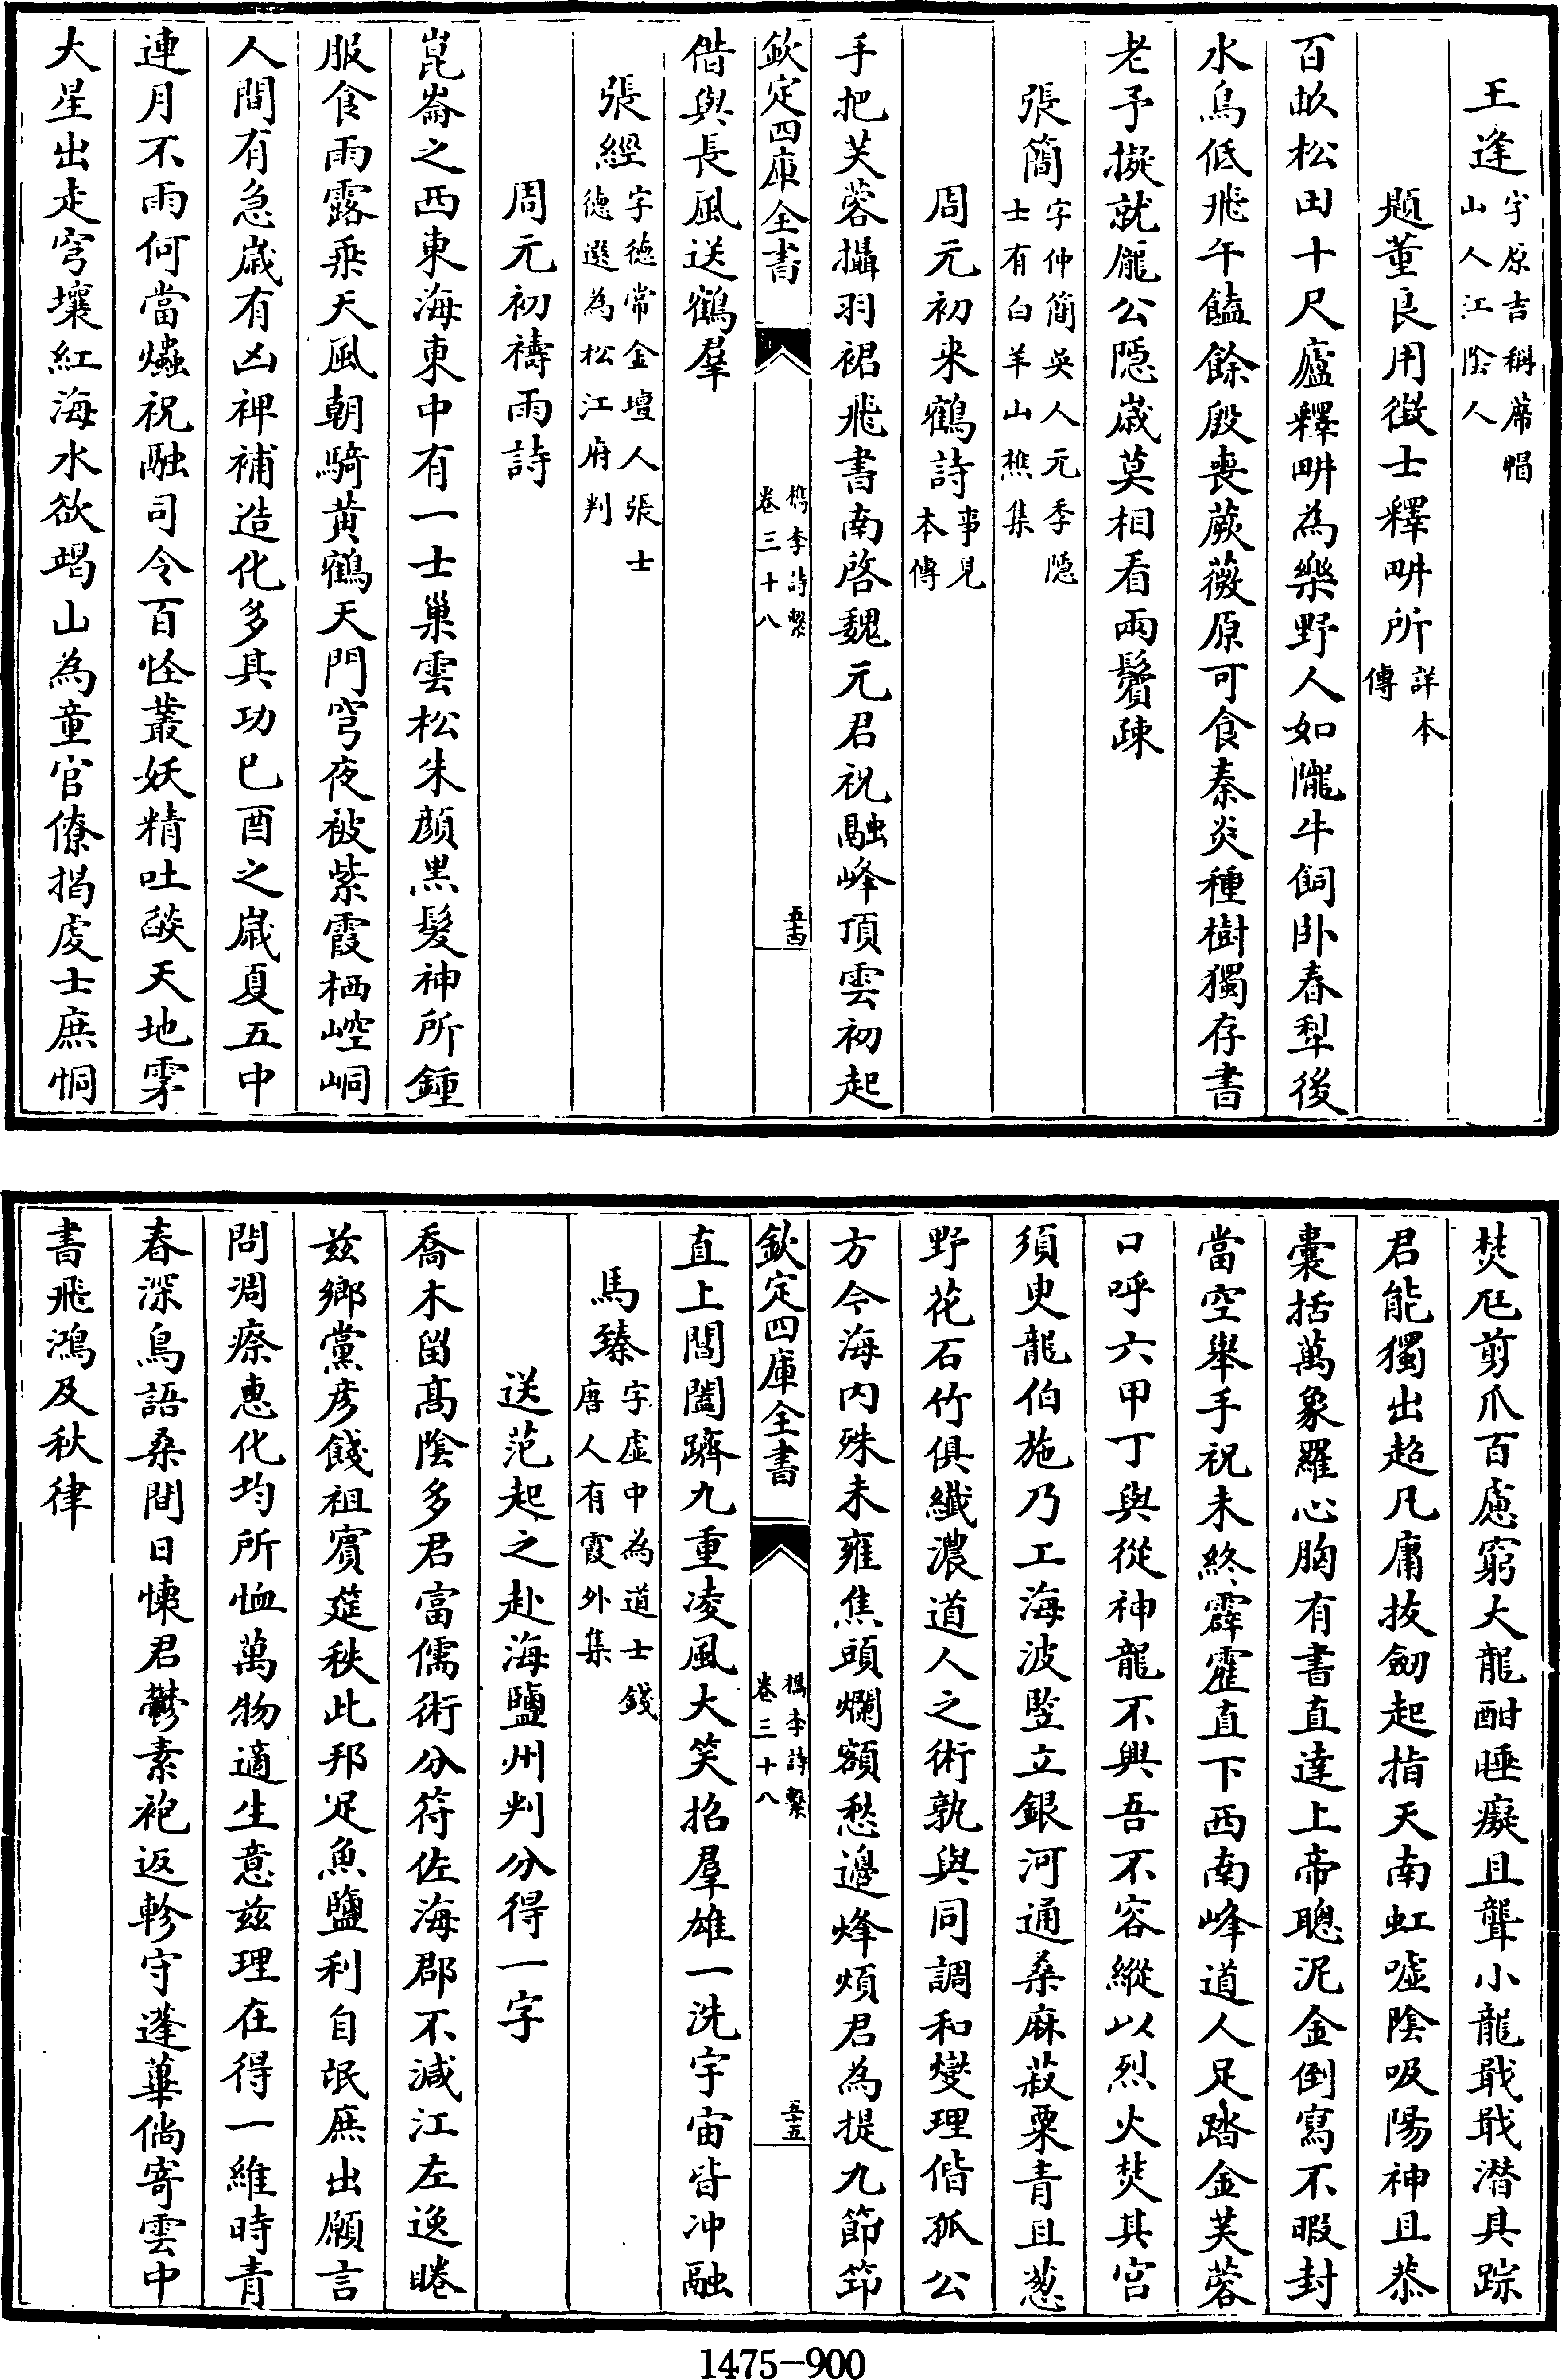 王逢字原吉稱蓆帽山人江陰人
題董良用徴士釋畊所詳本傳
百畝松田十尺廬釋畊為樂野人如隴牛飼卧春犁後
水鳥低飛午饁餘殷喪蕨薇原可食秦炎種樹獨存書
老予擬就龐公隱歳莫相看兩鬢疎
張簡字仲簡吳人元季隱士有白羊山樵集
周元初来鶴詩事見本傳
手把芙蓉攝羽裙飛書南啓魏元君祝融峰頂雲初起
欽定四庫全書 檇李詩繫卷三十八 五十四
借與長風送鶴羣
張經字德常金壇人張士德選為松江府判
周元初禱雨詩
崑崙之西東海東中有一士巢雲松朱顔黒髮神所鍾
服食雨露乘天風朝騎黄鶴天門穹夜被紫霞栖崆峒
人間有急歳有凶裨補造化多其功巳酉之歳夏五中
連月不雨何當爞祝融司令百怪叢妖精吐燄天地雺
大星出走穹壤紅海水欲竭山為童官僚揭虔士庶恫
焚尫剪爪百慮窮大龍酣睡癡且聾小龍戢戢潜其踪
君能獨出超凡庸抜劒起指天南虹嘘陰吸陽神且恭
囊括萬象羅心胸有書直達上帝聰泥金倒寫不暇封
當空舉手祝未終霹靂直下西南峰道人足踏金芙蓉
口呼六甲丁與從神龍不興吾不容縱以烈火焚其宫
須臾龍伯施乃工海波竪立銀河通桑麻菽粟青且葱
野花石竹俱纎濃道人之術孰與同調和燮理偕孤公
方今海内殊未雍焦頭爛額愁邉烽煩君為提九節笻
欽定四庫全書 檇李詩繫卷三十八 五十五
直上閶闔躋九重凌風大笑招羣雄一洗宇宙皆冲融
馬臻字虚中為道士錢唐人有霞外集
送范起之赴海鹽州判分得一字
喬木留髙陰多君富儒術分符佐海郡不減江左逸睠
兹鄉黨彦餞祖賔筵秩此邦足魚鹽利自氓庶出願言
問凋瘵惠化均所恤萬物適生意兹理在得一維時青
春深鳥語桑間日悚君鬱素袍返軫守蓬蓽倘寄雲中
書飛鴻及秋律
1475-900